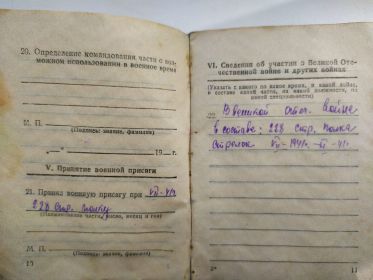 20. Определение командования части о воз-
можном использовании в военное время
М. П.
(Подпись: звание, фамилия)
„ “ 19 г.
V. Принятие военной присяги
21. Принял военную присягу при VII-41г.
228 стр. полку
(Наименование части, число, месяц и год)
М. П.
(Подпись: звание, фамилия)
10
VI. Сведения об участии в Великой Оте-
чественной войне и других войнах
(Указать с какого по какое время, в какой войне,
в составе какой части, на какой должности, по
какой специальности)
22. В великой отеч. войне
в составе: 228 стр. полка
стрелок VII-1941г.
2*
11